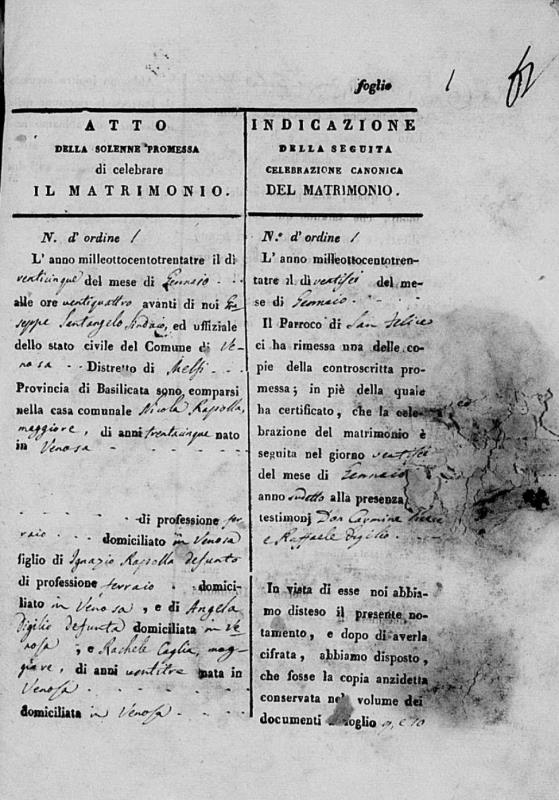 foglio 1
62
ATTO
DELLA SOLENNE PROMESSA
di celebrare
IL MATRIMONIO.
N. d' ordine 1
L' anno milleottocentotrentatre il dì
venticinque del mese di Gennaio
alle ore ventiquattro avanti di noi Giu
seppe Santangelo Sindaco, ed uffiziale
dello stato civile del Comune di Ve-
nosa Distretto di Melfi
Provincia di Basilicata sono comparsi
nella casa comunale Nicola Rapolla,
maggiore, di anni trentacinque nato
in Venosa
di professione fer
raio domiciliato in Venosa
figlio di Ignazio Rapolla defunto
di professione ferraio domici-
liato in Venosa, e di Angela
Digilio defunta domiciliata in Ve-
nosa; e Rachele Caglia, mag-
giore, di anni ventitre nata in
Venosa
domiciliata in Venosa
INDICAZIONE
DELLA SEGUITA
CELEBRAZIONE CANONICA
DEL MATRIMONIO.
N.º d' ordine 1
L' anno milleottocentotren-
tatre il dì ventisei del me-
se di Gennaio
Il Parroco di San Felice
ci ha rimessa una delle co-
pie della controscritta pro-
messa; in piè della quale
ha certificato, che la cele-
brazione del matrimonio è
seguita nel giorno ventisei
del mese di Gennaio
anno sudetto alla presenza
testimonj Don Carmine
e Raffaele Digilio
In vista di esse noi abbia-
mo disteso il presente no-
tamento, e dopo di averla
cifrata, abbiamo disposto,
che fosse la copia anzidetta
conservata nel volume dei
documenti foglio 9, e 10